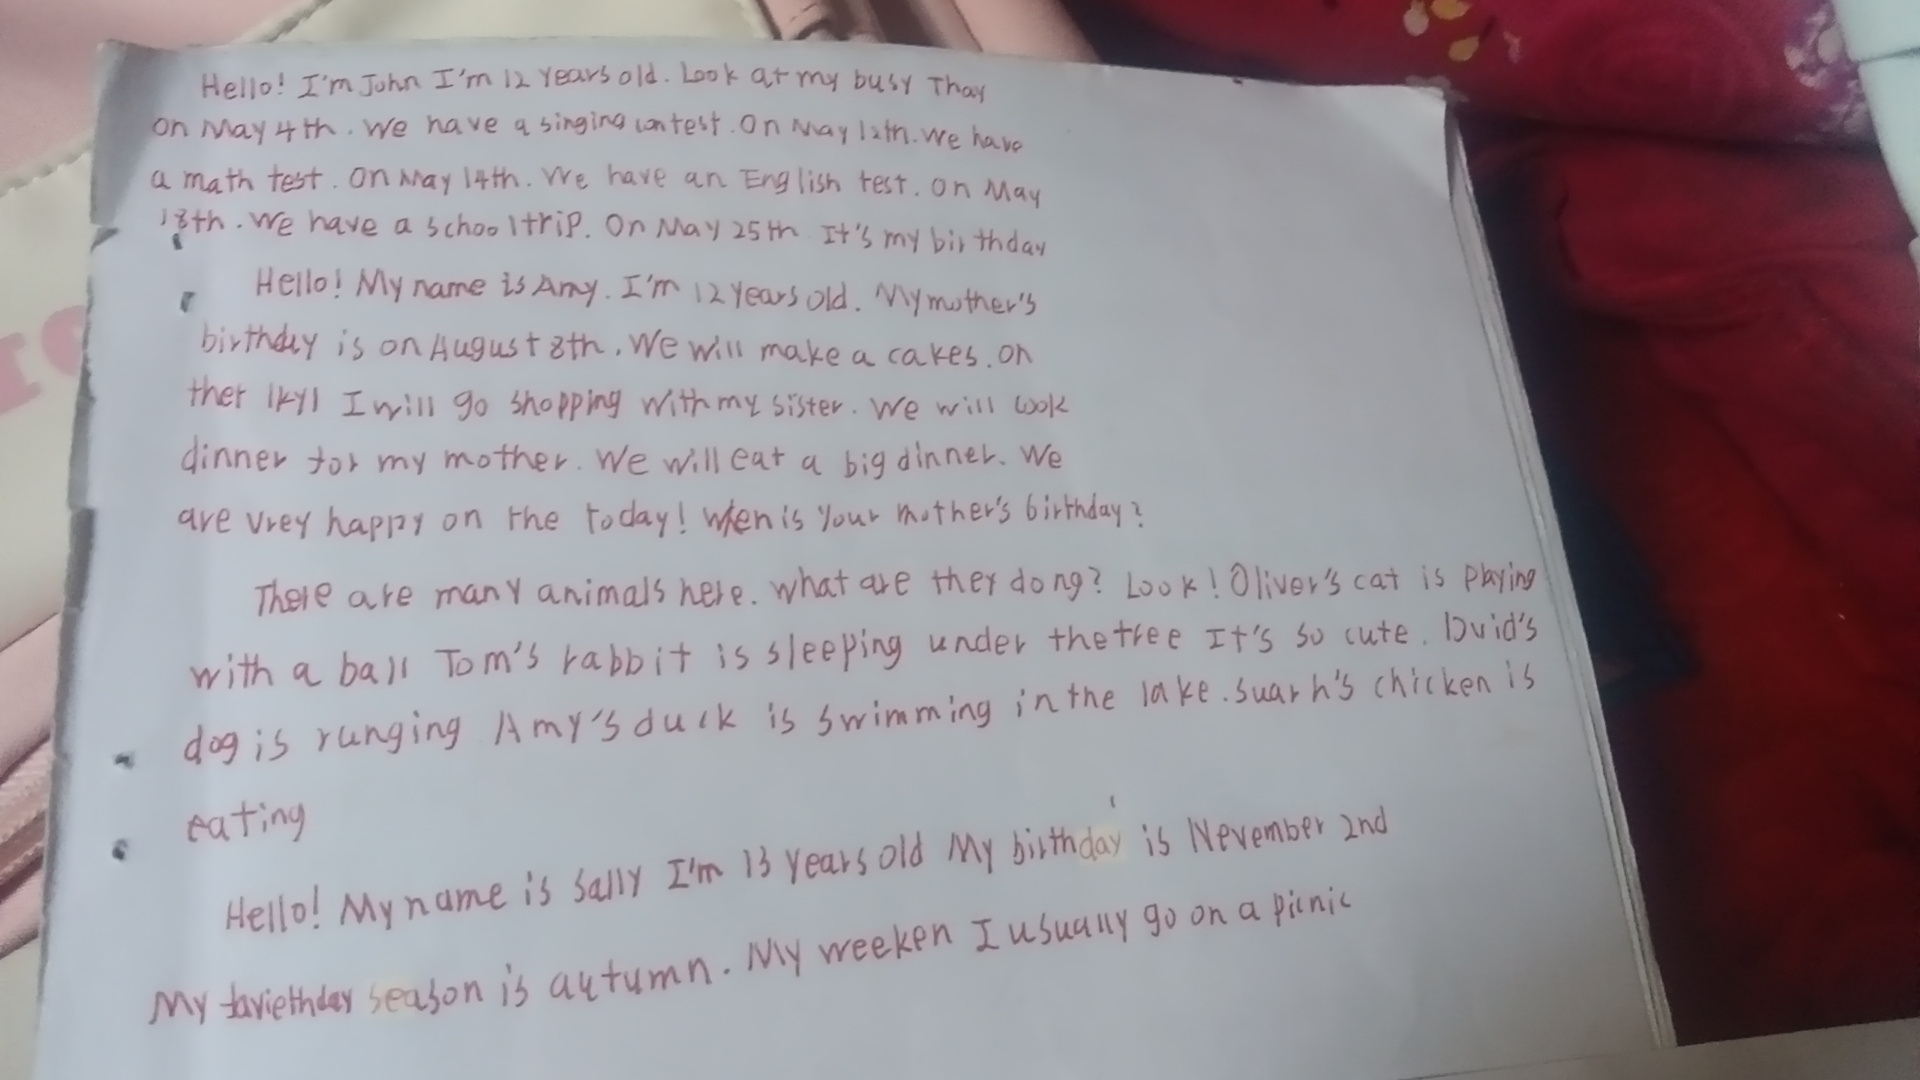 Hello! I'm John I'm 12 years old. Look at my busy Thay
on May 4th. We have a singing contest. On May 12th. We have
a math test. On May 14th. We have an English test. On May
18th. We have a school trip. On May 25th It's my birthday
Hello! My name is Amy. I'm 12 years old. My mother's
birthday is on August 8th. We will make a cakes. on
ther I will go shopping with my sister. We will cook
dinner for my mother. We will eat a big dinner. We
are vrey happy on the today! When is your mother's birthday?
There are many animals here. What are they dong? Look! Oliver's cat is playing
with a ball Tom's rabbit is sleeping under the tree It's so cute. Dvid's
dog is runging Amy's duck is swimming in the lake. Suarh's chicken is
eating
Hello! My name is Sally I'm 13 years old My birthday is Nevember 2nd
My season is autumn. My weeken I usually go on a picnic